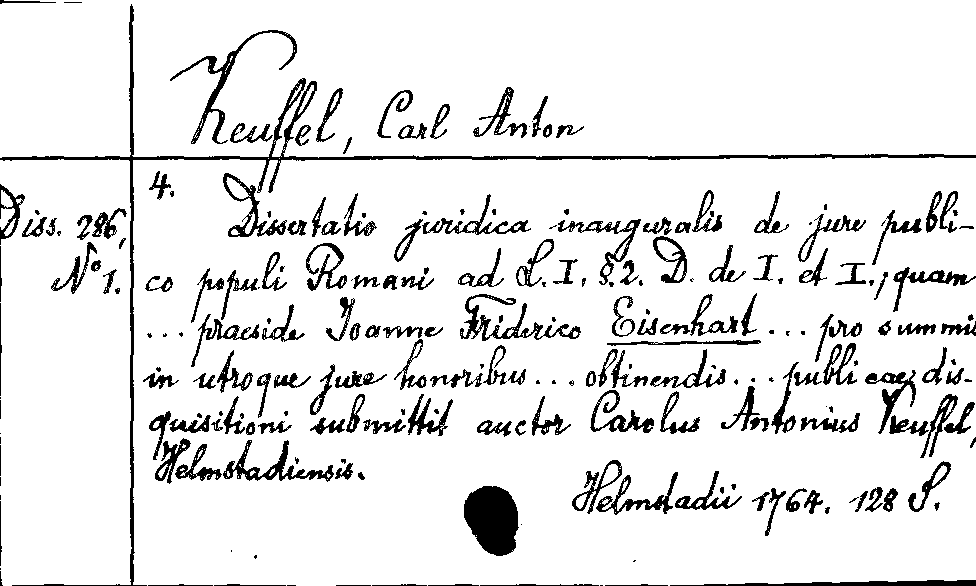 Keuffel, Carl Anton
4.
Diss. 286,
No 1.
Dissertatio juridica inauguralis de jure publi-
co populi Romani ad L. I. §. 2. D. de I. et I., quam
... praeside Joanne Friderico Eisenhart ... pro summis
in utroque jure honoribus ... obtinendis ... publicae dis-
quisitioni submittit auctor Carolus Antonius Keuffel,
Helmstadiensis.
Helmstadii 1764. 128 S.